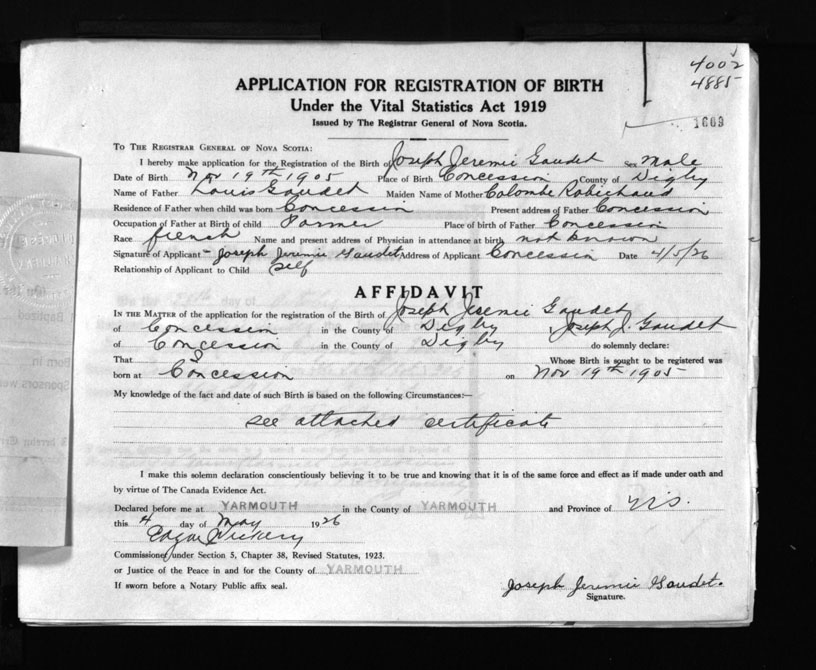 4002
4885
1603
APPLICATION FOR REGISTRATION OF BIRTH
Under the Vital Statistics Act 1919
Issued by The Registrar General of Nova Scotia.
TO THE REGISTRAR GENERAL OF NOVA SCOTIA:
I hereby make application for the Registration of the Birth of Joseph Jeremie Gaudet Sex Male
Date of Birth Nov 19th 1905 Place of Birth Concession County of Digby
Name of Father Louis Gaudet Maiden Name of Mother Colombe Robichaud
Residence of Father when child was born Concession Present address of Father Concession
Occupation of Father at Birth of child Farmer Place of birth of Father Concession
Race french Name and present address of Physician in attendance at birth not known
Signature of Applicant Joseph Jeremie Gaudet Address of Applicant Concession Date 4/5/26
Relationship of Applicant to Child Self
AFFIDAVIT
IN THE MATTER of the application for the registration of the Birth of Joseph Jeremie Gaudet
of Concession in the County of Digby , Joseph J. Gaudet
of Concession in the County of Digby do solemnly declare:
That I Whose Birth is sought to be registered was
born at Concession on Nov 19th 1905
My knowledge of the fact and date of such Birth is based on the following Circumstances:—
see attached certificate
I make this solemn declaration conscientiously believing it to be true and knowing that it is of the same force and effect as if made under oath and
by virtue of The Canada Evidence Act.
Declared before me at YARMOUTH in the County of YARMOUTH and Province of N.S.
this 4 day of May 1926
Edgar Vickery
Commissioner under Section 5, Chapter 38, Revised Statutes, 1923.
or Justice of the Peace in and for the County of YARMOUTH
If sworn before a Notary Public affix seal.
Joseph Jeremie Gaudet.
Signature.